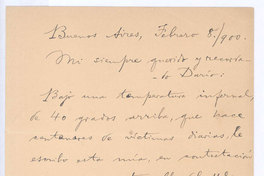 Buenos Aires, Febrero 8/900.
Mi siempre querido y recorda-
do Darío:
Bajo una temperatura infernal,
de 40 grados arriba, que hace
centenares de víctimas diarias, le
escribo esta mía, en contestación